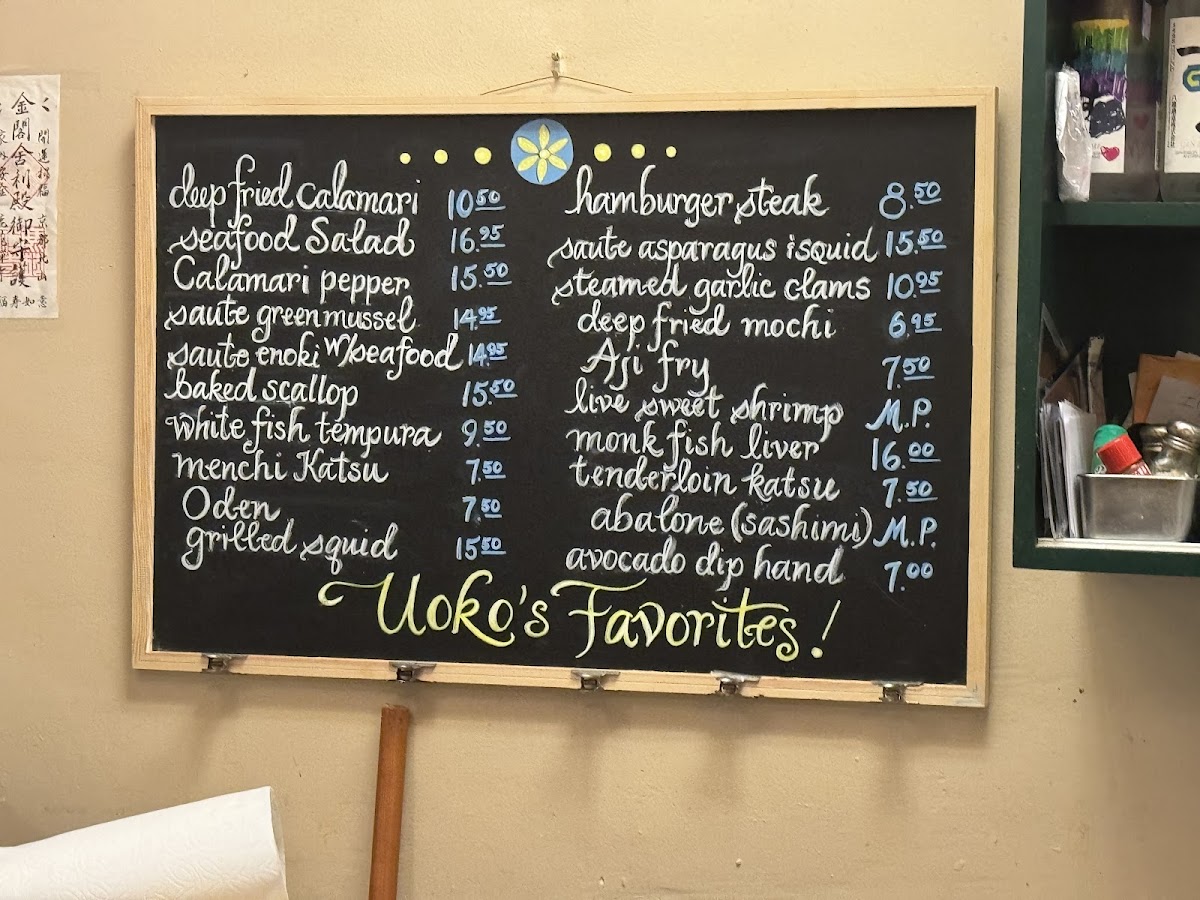 金閣舎利殿御守護
開運招福 京都北山
deep fried Calamari 10.50
seafood Salad 16.95
Calamari pepper 15.50
saute green mussel 14.95
saute enoki w/seafood 14.95
baked scallop 15.50
white fish tempura 9.50
menchi Katsu 7.50
Oden 7.50
grilled squid 15.50
hamburger steak 8.50
saute asparagus & squid 15.50
steamed garlic clams 10.95
deep fried mochi 6.95
Aji fry 7.50
live sweet shrimp M.P.
monk fish liver 16.00
tenderloin katsu 7.50
abalone (sashimi) M.P.
avocado dip hand 7.00
Uoko's Favorites!